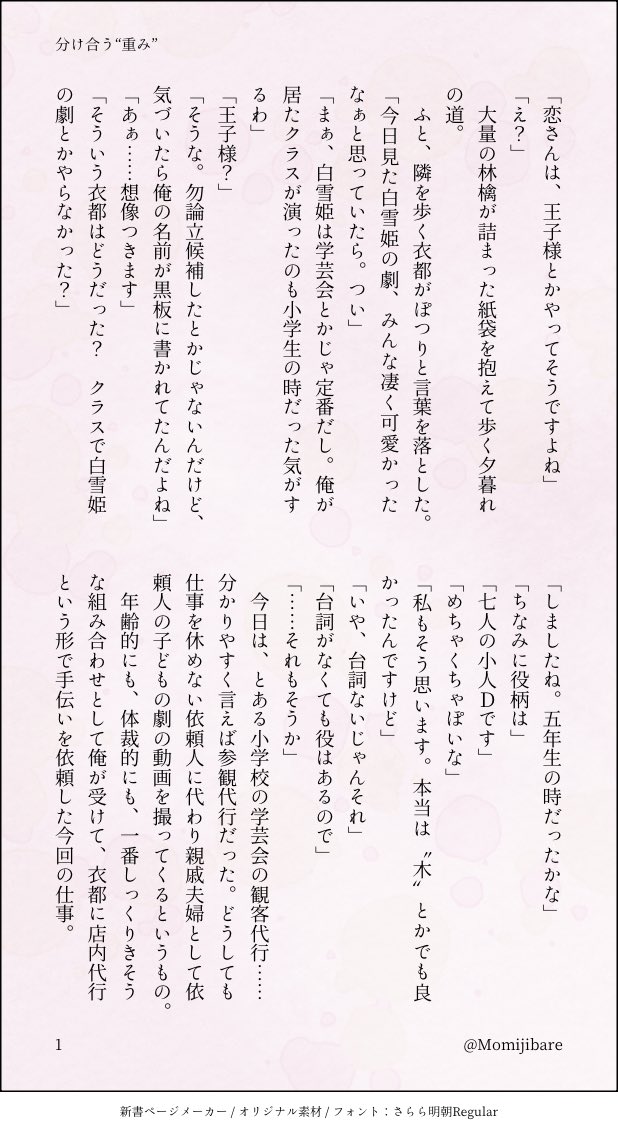 分け合う“重み”
「恋さんは、王子様とかやってそうですよね」
「え？」
　大量の林檎が詰まった紙袋を抱えて歩く夕暮れ
の道。
　ふと、隣を歩く衣都がぽつりと言葉を落とした。
「今日見た白雪姫の劇、みんな凄く可愛かった
なぁと思っていたら。つい」
「まぁ、白雪姫は学芸会とかじゃ定番だし。俺が
居たクラスが演ったのも小学生の時だった気がす
るわ」
「王子様？」
「そうな。勿論立候補したとかじゃないんだけど、
気づいたら俺の名前が黒板に書かれてたんだよね」
「あぁ……想像つきます」
「そういう衣都はどうだった？　クラスで白雪姫
の劇とかやらなかった？」
「しましたね。五年生の時だったかな」
「ちなみに役柄は」
「七人の小人Ｄです」
「めちゃくちゃぽいな」
「私もそう思います。本当は〝木〟とかでも良
かったんですけど」
「いや、台詞ないじゃんそれ」
「台詞がなくても役はあるので」
「……それもそうか」
　今日は、とある小学校の学芸会の観客代行……
分かりやすく言えば参観代行だった。どうしても
仕事を休めない依頼人に代わり親戚夫婦として依
頼人の子どもの劇の動画を撮ってくるというもの。
　年齢的にも、体裁的にも、一番しっくりきそう
な組み合わせとして俺が受けて、衣都に店内代行
という形で手伝いを依頼した今回の仕事。
1
@Momijibare
新書ページメーカー / オリジナル素材 / フォント：さらら明朝Regular